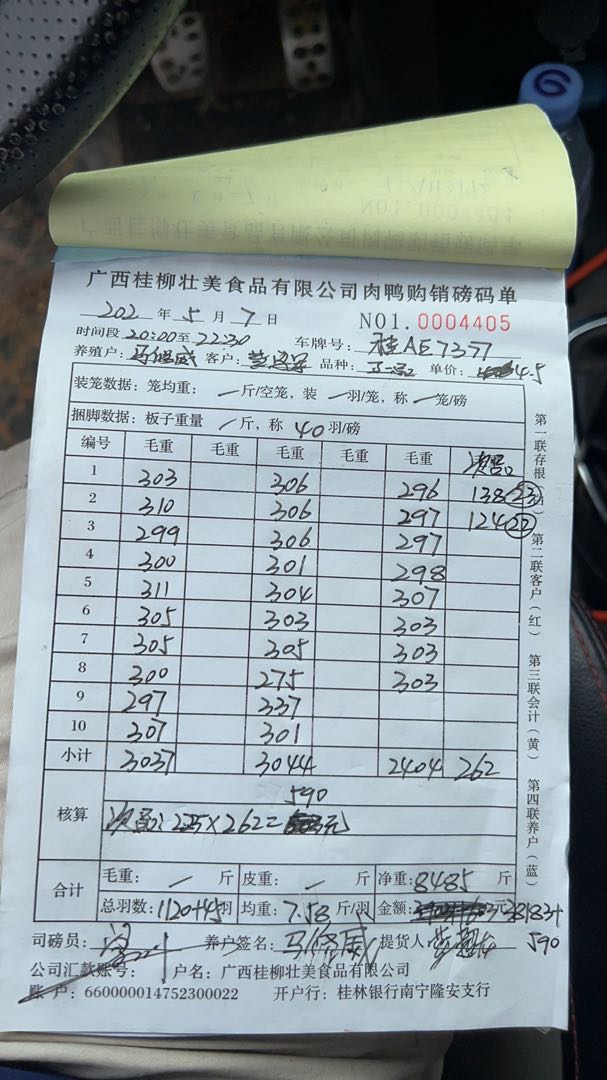 广西桂柳壮美食品有限公司肉鸭购销磅码单
202 年 5 月 7 日 NO1. 0004405
时间段 20:00至22:30 车牌号: 桂AE7377
养殖户: 马修威 客户: 品种: 单价: 4.5
装笼数据: 笼均重: 斤/空笼, 装 羽/笼, 称 笼/磅
捆脚数据: 板子重量 斤, 称 40 羽/磅
编号 毛重 毛重 毛重 毛重 毛重 次品
1 303 306 296 138 23
2 310 306 297 124 22
3 299 306 297
4 300 301 298
5 311 304 307
6 305 303 303
7 305 305 303
8 300 275 303
9 297 337
10 307 301
小计 3037 3044 2404 262
590
核算 次品: 2.25×262= 元
合计 毛重: 斤 皮重: 斤 净重: 8485 斤
总羽数: 1120+45羽 均重: 7.58 斤/羽 金额: 元 38183+
590
司磅员: 养户签名: 马修威 提货人:
公司汇款账号: 户名: 广西桂柳壮美食品有限公司
账 户: 660000014752300022 开户行: 桂林银行南宁隆安支行
第一联存根
第二联客户(红)
第三联会计(黄)
第四联养户(蓝)